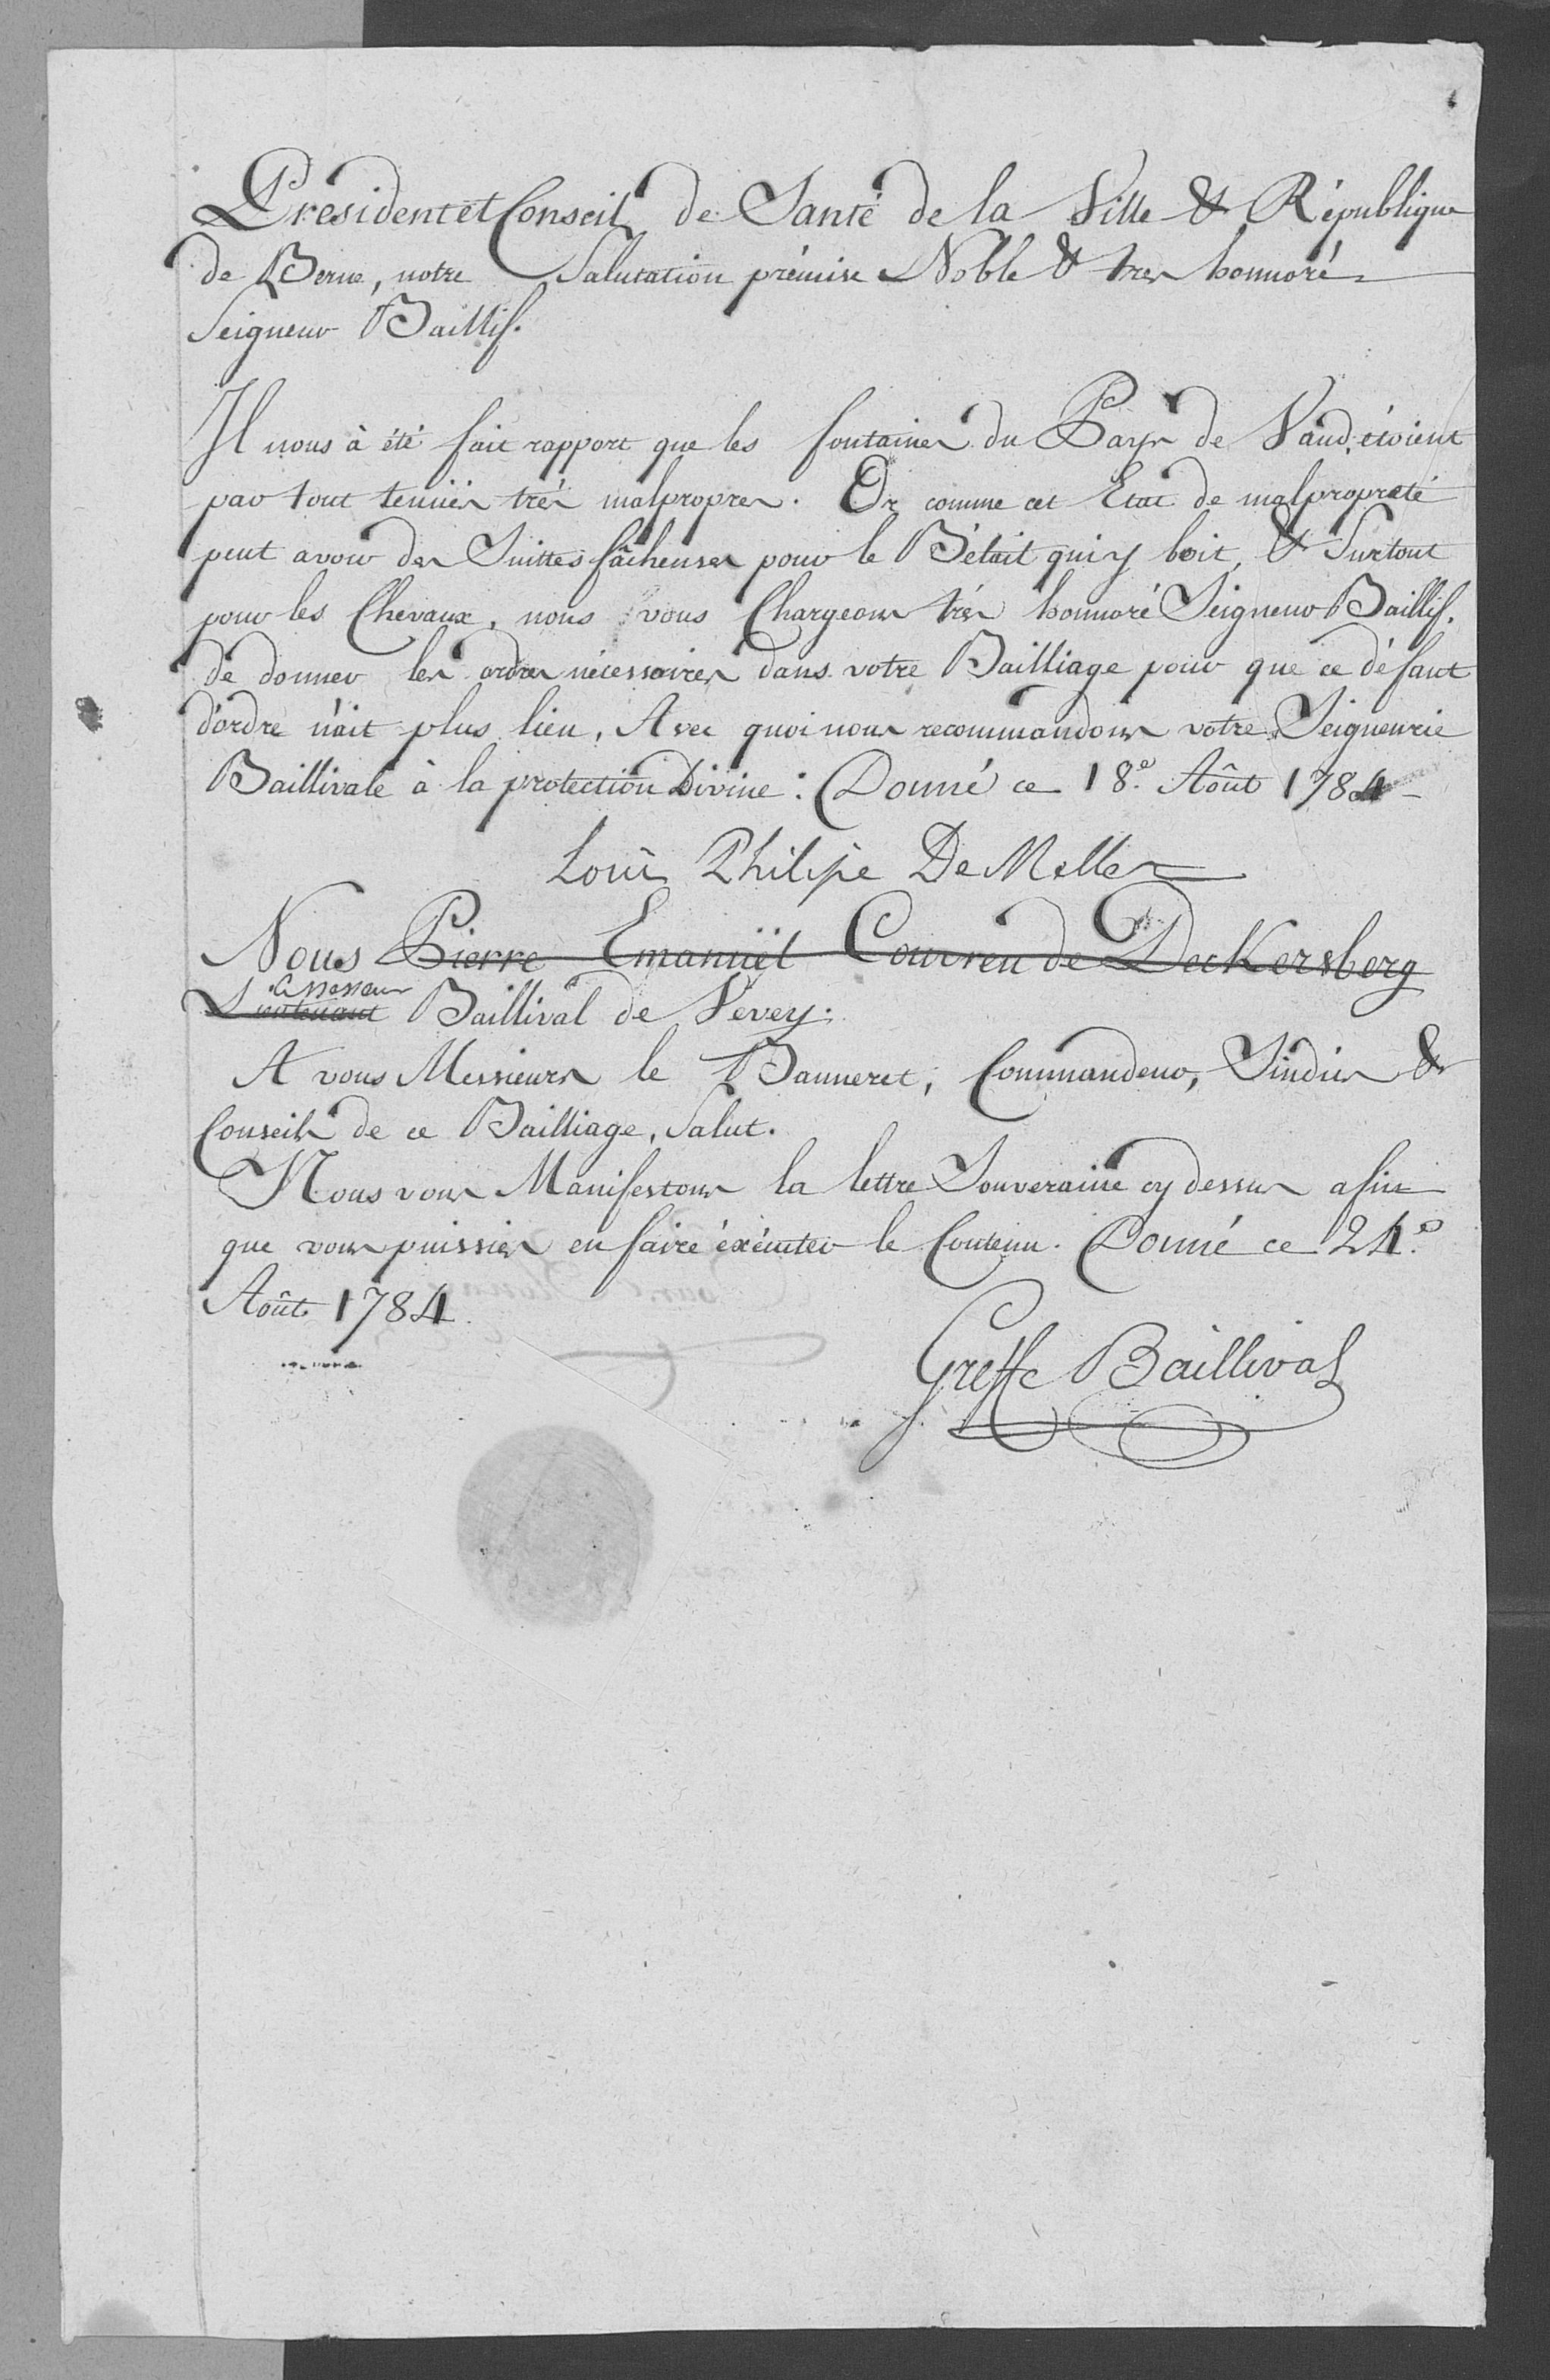 President et Conseil de Santé de la Ville & République
de Berne, notre Salutation prémise Noble & tres honnoré
Seigneur Baillif.
Il nous à été fait rapport que les fontaines du Pays de Vaud, étoient
par tout tenües trés malpropres. Or comme cet Etat de malpropreté
peut avoir des Suittes fâcheuses pour le Bétail qui y boit, & Surtout
pour les Chevaux, nous vous Chargeons trés honnoré Seigneur Baillif.
de donner les ordres nécessaires dans votre Bailliage pour que ce défaut
d'ordre n'ait plus lieu, Avec quoi nous recommandons votre Seigneurie
Baillivale à la protection Divine : Donné ce 18.e Août 1784
Louis Philipe De Mellet
Nous Pierre Emanüel Couvreu de Deckersberg
Assesseur
Lieutenant Baillival de Vevey.
A vous Messieurs le Banneret, Commandeur, Sindics &
Conseils de ce Bailliage, Salut.
Nous vous Manifestons la lettre Souveraine cy dessus afin
que vous puissies en faire éxécuter le Contenu. Donné ce 24.e
Août 1784.
Greffe Baillival